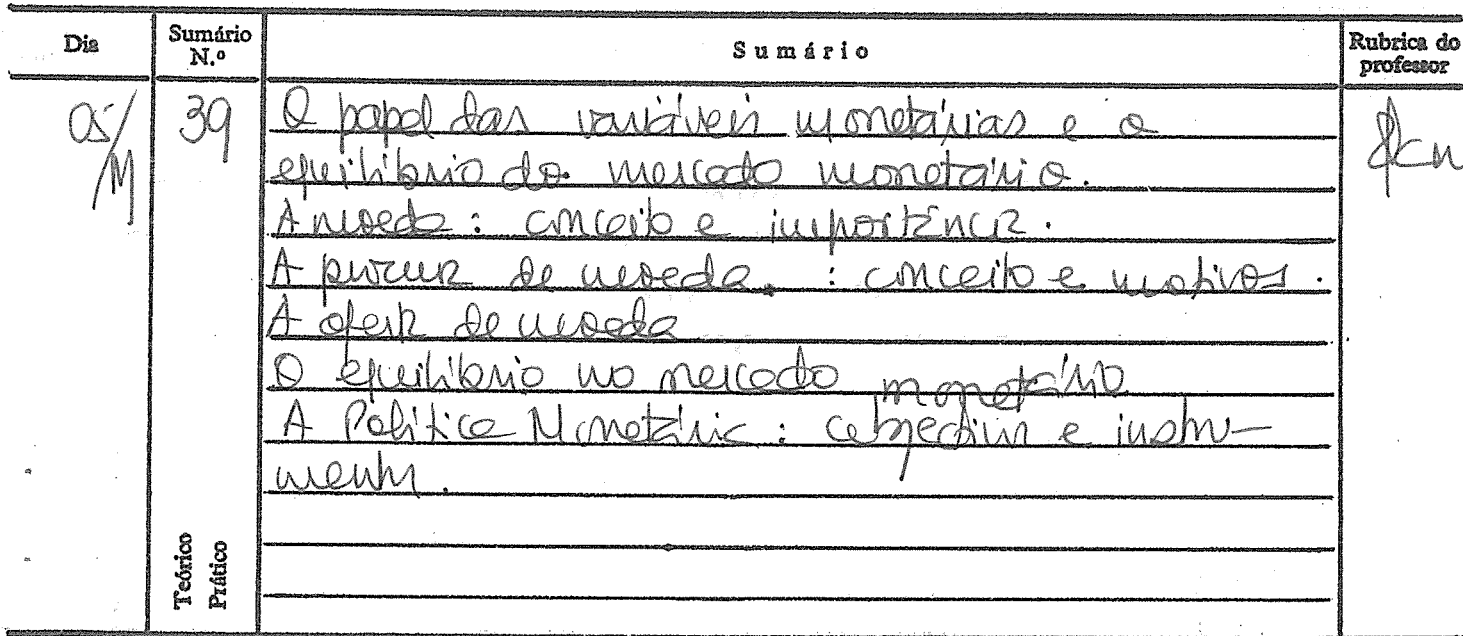 Dia
Sumário N.º
Sumário
Rubrica do professor
05/M
39
O papel das variáveis monetárias e o
equilíbrio do mercado monetário.
A moeda: conceito e importância.
A procura de moeda. : conceito e motivos.
A oferta de moeda
O equilíbrio no mercado monetário
A Política Monetária: objectivos e instru-
mentos.
Teórico
Prático